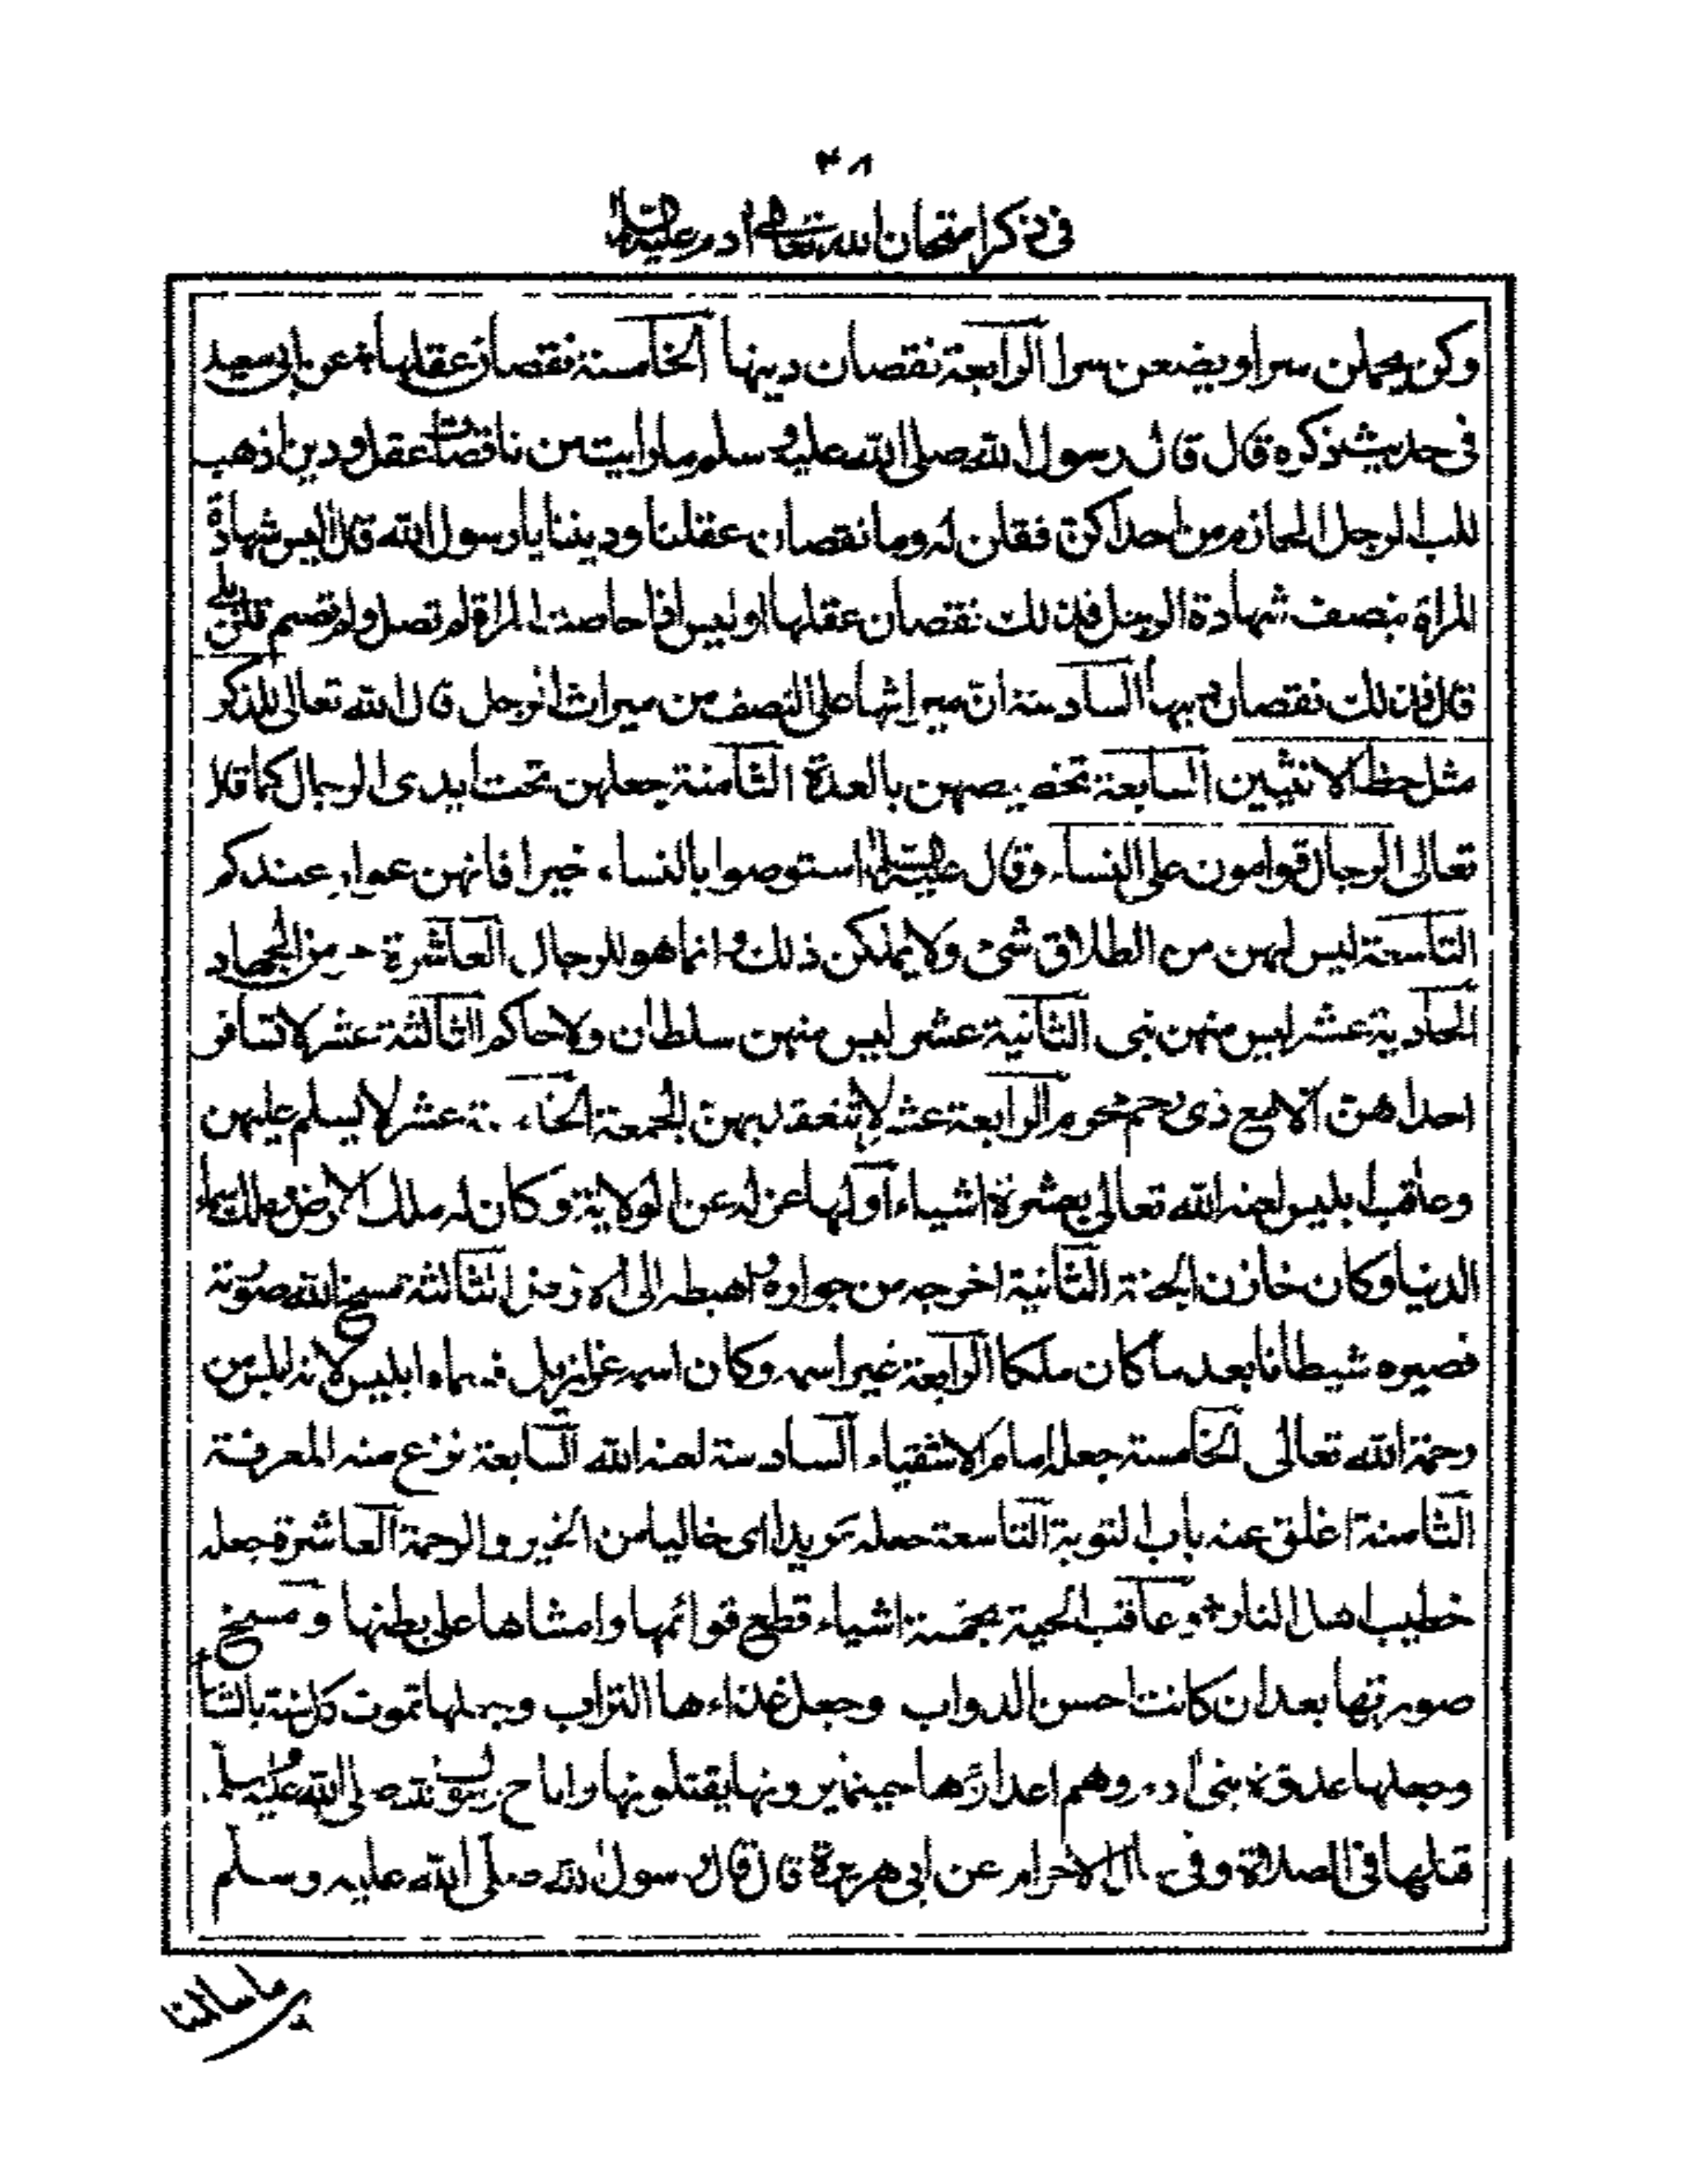 ٣٨
في ذكر امتحان الله تعالى آدم عليه السلام
وكن يحملن سرا ويضعن سرا الرابعة نقصان دينها الخامسة نقصان عقلها عن ابي سعيد
في حديث ذكره قال قال رسول الله صلى الله عليه وسلم ما رايت من ناقصات عقل ودين اذهب
للب الرجل الحازم من احداكن فقلن له وما نقصان عقلنا وديننا يا رسول الله قال اليس شهادة
المراة نصف شهادة الرجل فذلك نقصان عقلها اوليس اذا حاضت المراة لم تصل ولم تصم قلن بلى
قال فذلك نقصان دينها السادسة ان ميراثها على النصف من ميراث الرجل قال الله تعالى للذكر
مثل حظ الانثيين السابعة تخصيصهن بالعدة الثامنة جعلهن تحت ايدى الرجال كما قال
تعالى الرجال قوامون على النساء وقال عليه السلام استوصوا بالنساء خيرا فانهن عوار عندكم
التاسعة ليس لهن من الطلاق شئ ولا يملكن ذلك وانما هو للرجال العاشرة من الجهاد
الحادية عشر ليس منهن نبى الثانية عشر ليس منهن سلطان ولا حاكم الثالثة عشر لا تسافر
احداهن الا مع ذى رحم محرم الرابعة عشر لا تنعقد بهن الجمعة عشر لا يسلم عليهن
وعاقب ابليس لعنه الله تعالى بعشرة اشياء اولها عزله عن الولاية وكان له ملك الارض وملك سماء
الدنيا وكان خازن الجنة الثانية اخرجه من جواره واهبطه الى الارض الثالثة مسخ الله صورته
فصيره شيطانا بعد ما كان ملكا الرابعة غير اسمه وكان اسمه عزازيل فسماه ابليس لانه ابلس من
رحمة الله تعالى الخامسة جعله امام الاشقياء السادسة لعنه الله السابعة نزع منه المعرفة
الثامنة اغلق عنه باب التوبة التاسعة جعله مريدا اى خاليا من الخير والرحمة العاشرة جعله
خطيب اهل النار وعاقب الحية بخمسة اشياء قطع قوائمها وامشاها على بطنها ومسخ
صورتها بعد ان كانت احسن الدواب وجعل غذاءها التراب وجعلها تموت كل سنة بالشتاء
وجعلها عدوة بنى آدم وهم اعداؤها حيثما يرونها يقتلونها واباح رسول الله صلى الله عليه وسلم
قتلها في الصلاة وفي حال الاحرام عن ابي هريرة قال قال رسول الله صلى الله عليه وسلم
ما سالمنا